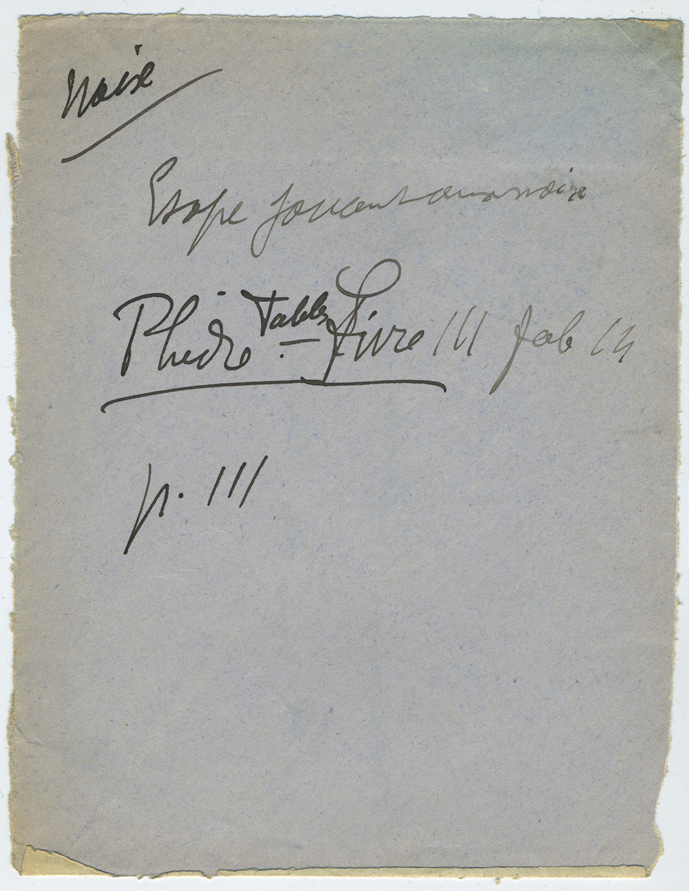 Noix
Esope jouant aux noix
Phèdre Fables – Livre III fab 14
p. 111